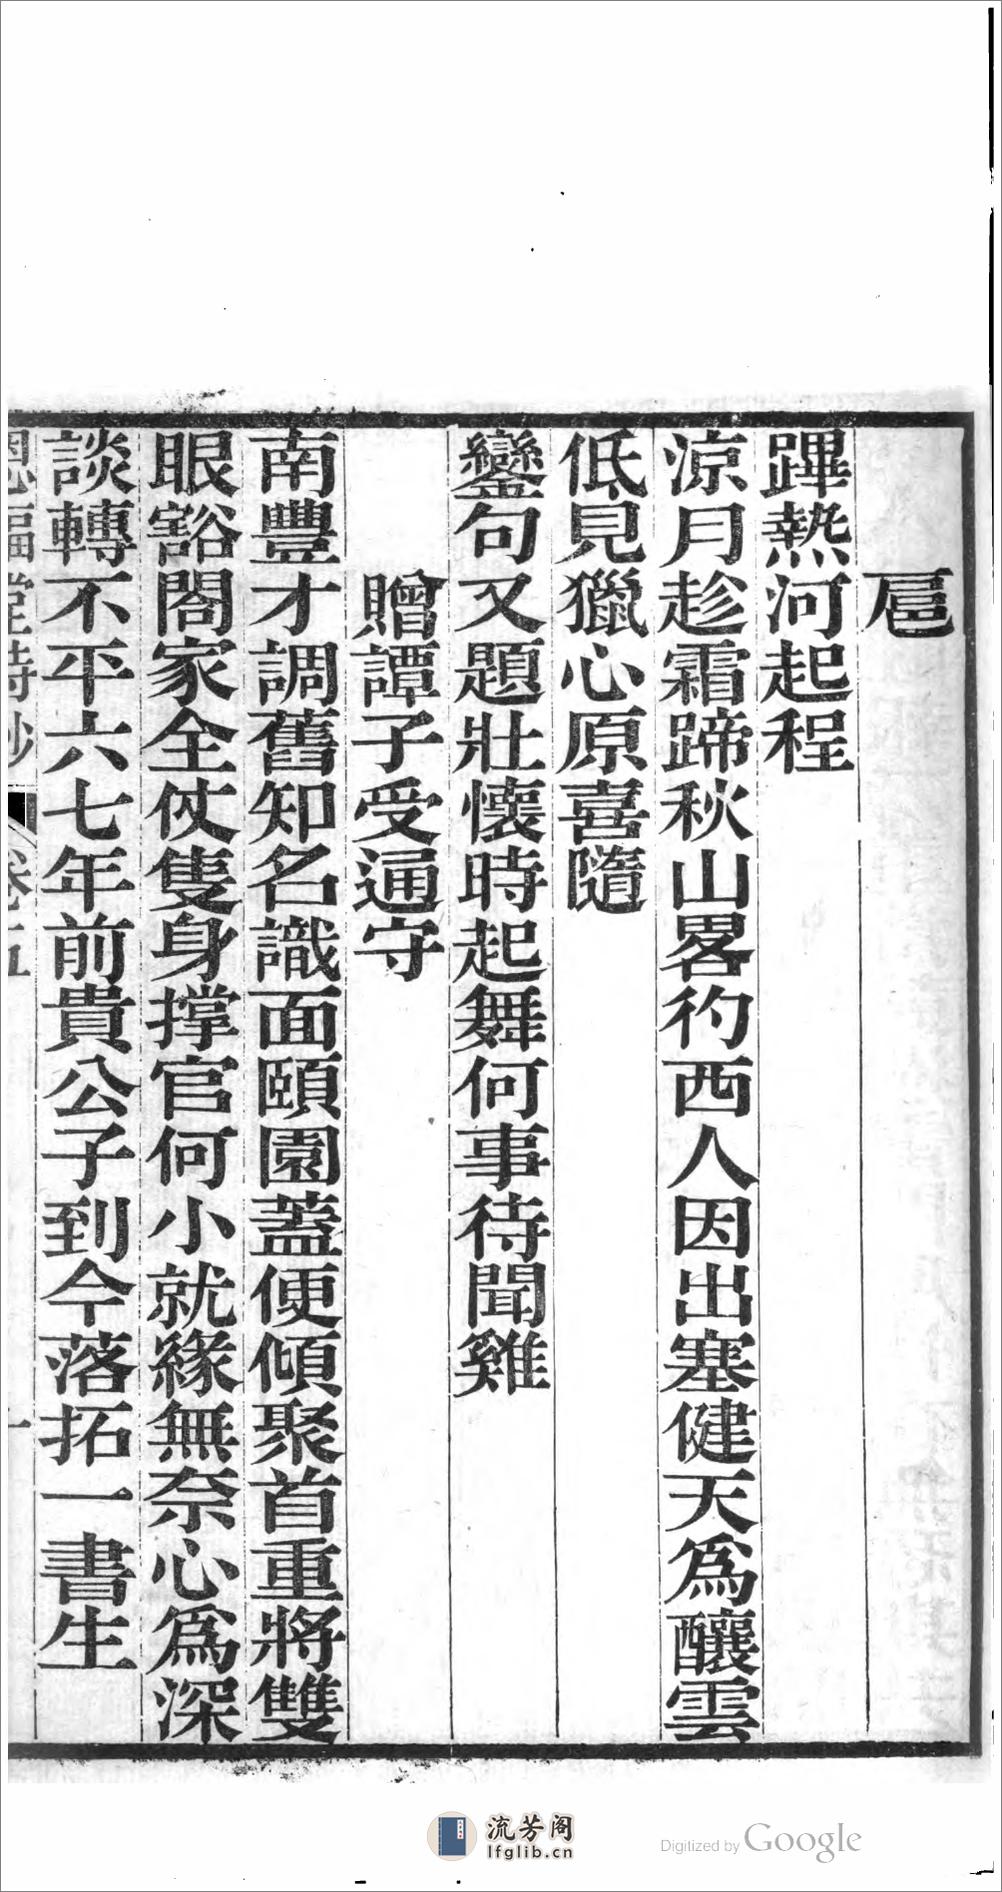 扈
蹕熱河起程
涼月趁霜蹄秋山畧彴西人因出塞健天爲釀雲
低見獵心原喜隨
鑾句又題壯懷時起舞何事待聞雞
贈譚子受通守
南豐才調舊知名識面頤園蓋便傾聚首重將雙
眼豁閤家全仗隻身撐官何小就緣無奈心爲深
談轉不平六七年前貴公子到今落拓一書生
恩福堂詩鈔
卷五
一
流芳阁
lfglib.cn
Digitized by Google